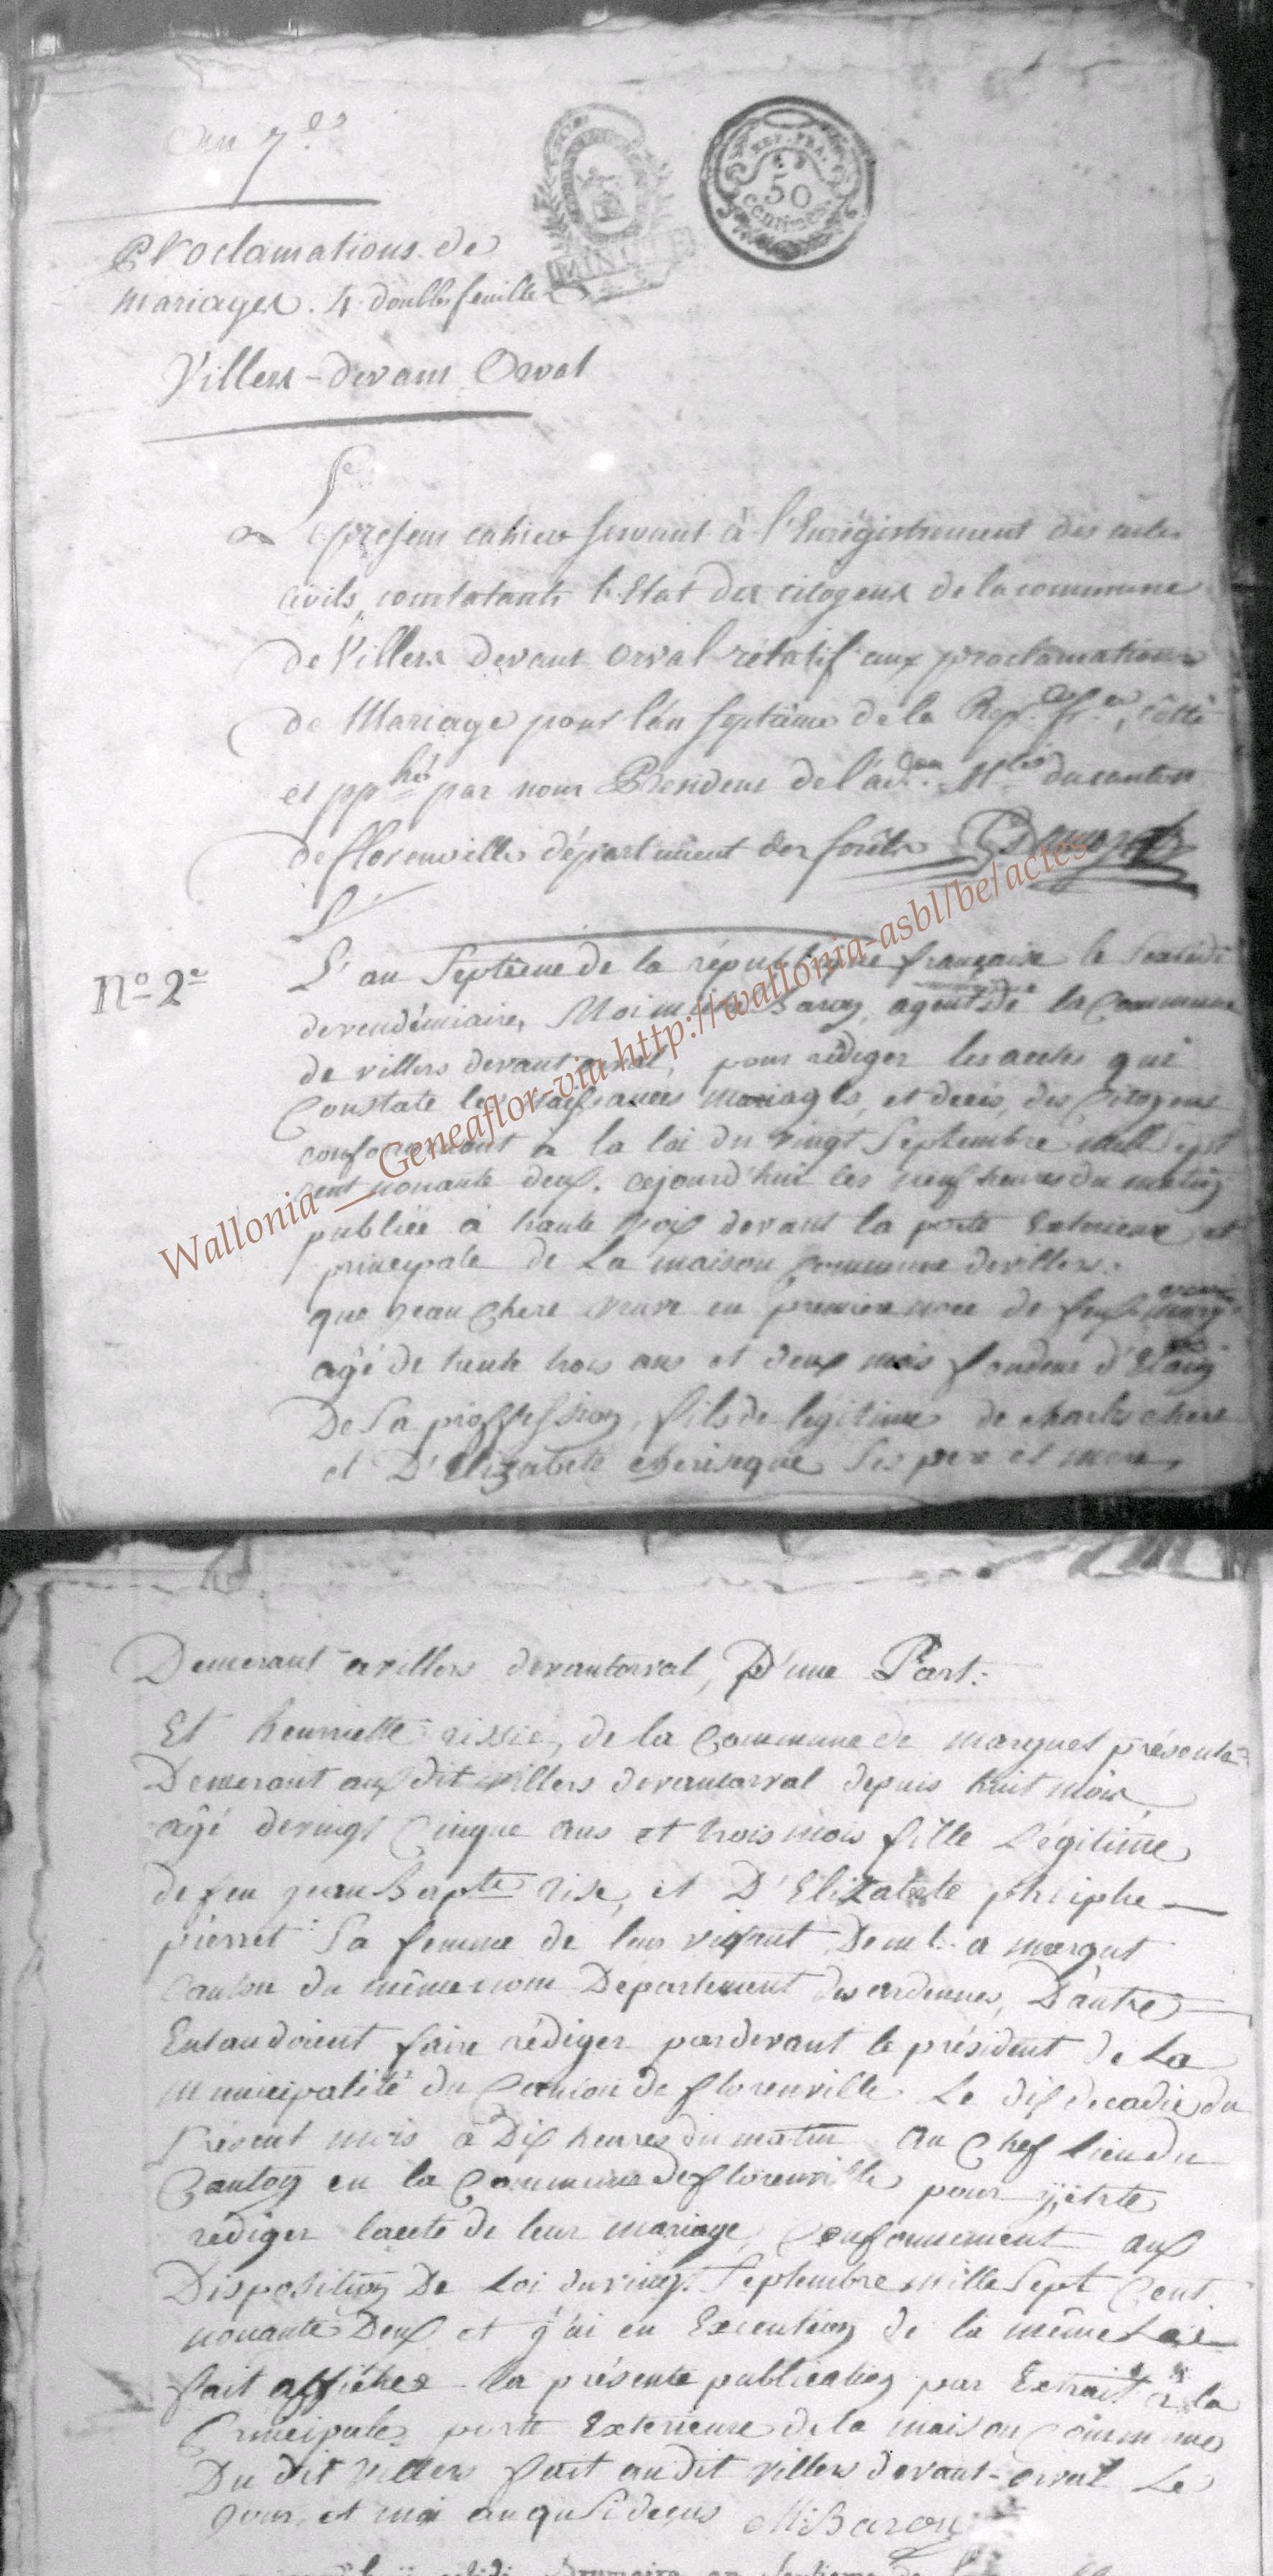 an 7.e
REP. FRA.
50
centimes
MINUTE
Proclamations de
mariages. 4 doubles feuilles
Villers-devant Orval
Le present cahier servant à l'Enregistrement des actes
civils, constatants l'Etat des citoyens de la commune
de Villers devant Orval rélatif aux proclamations
de Mariage pour l'an septième de la Rep. fr. , côtté
et pphé par nous President de l'ad.on M.le du canton
de florenville département des forêts
N.o 2.e
L'an Septieme de la république française le
de vendémiaire, Moi Baron, agent de la Commune
de villers devant orval, pour rédiger les actes qui
Constate les naissances mariages, et deces, des Citoyens
conformement a la loi du vingt Septembre mille sept
cent nonante deux. cejourd'hui les neuf heures du matin
publiée à haute voix devant la porte Exterieure et
principale de La maison Commune de villers.
que jean Chere veuve en premiere noce de
agé de trente trois ans et deux mois fondeur d'Etaing
De Sa proffession, fils de legitime de charles chere
et D'Elizabete ses pere et mere,
Demerant a villers devantorval, D'une Part:
Et henriette de la Commune de margues présente
Demerant aux dit villers devantorval depuis huit mois
agé de vingt Cinque ans et trois mois fille Légitime
de feu jean Bapte rise, et D'Elizabete phiiphe
pierret Sa femme de leur vivant Dem.t a margut
Canton du même nom Departement des ardennes, D'autre
Entandoient faire rédiger pardevant le président de La
Municipalité du Canton de florenville Le dix decadie du
Présent mois à Dix heures du matin au Chef lieu du
Canton en la Commune de florenville pour y etre
rédiger lacete de leur mariage, Conformement aux
Disposition De Loi du vingt Septembre mille Sept Cent
nonante Deux et j'ai en Execution de la même Loi
fait afficher la présente publication par Extrait à la
Principale porte Exterieure de la maison Commune
Du dit villers fait audit villers devant-orval Le
jour, et moi an que Sidesus M: Baron